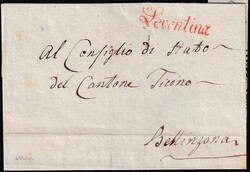 Leventina
Al Consiglio di Stato
del Cantone Ticino
Bellinzona